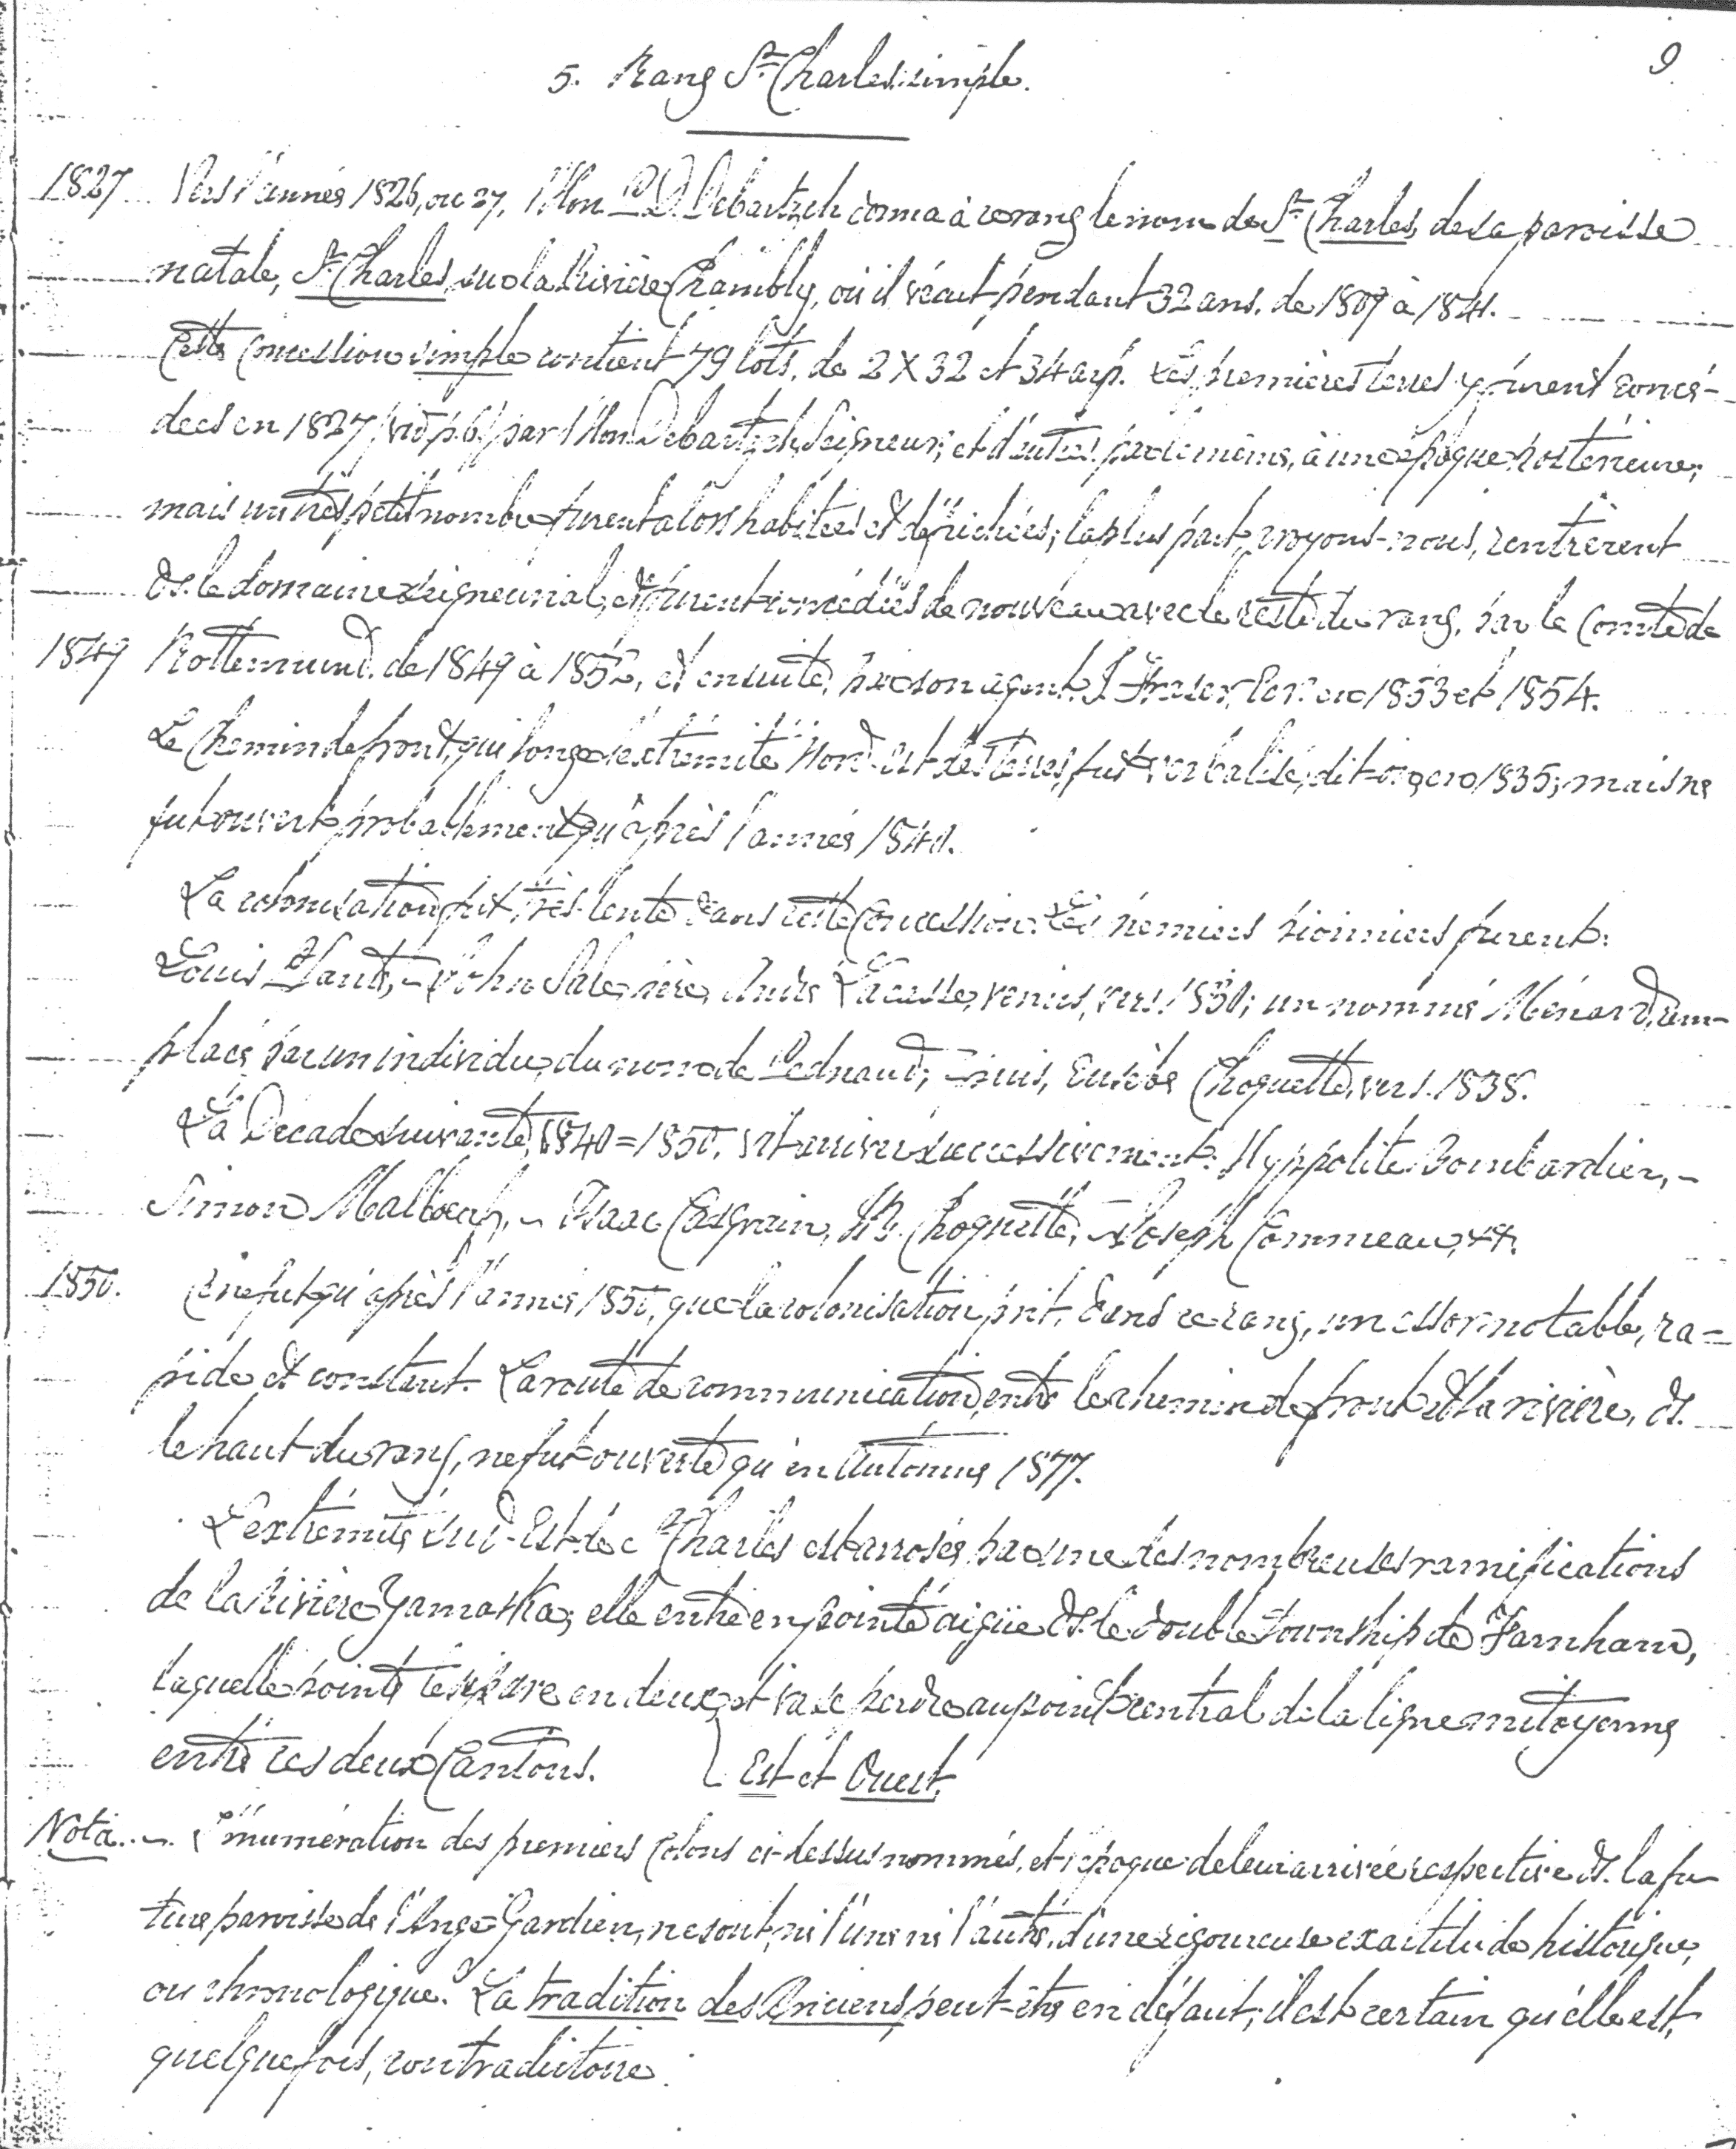 9
5. Rang St Charles, simple.
1827 Vers l'année 1826, ou 27, l'Hon. P. D. Debartzch donna à ce rang le nom de St Charles, de sa paroisse
natale, St Charles, sur la Rivière Chambly, où il vécut pendant 32 ans, de 1809 à 1841.
Cette Concession simple contient 79 lots, de 2 X 32 et 34 arp. Les premières Terres y furent concé-
dées en 1827 (vid p. 6) par l'Hon. Debartzch, Seigneur; et d'autres, par le même, à une époque postérieure;
mais un très petit nombre furent alors habitées et défrichées; la plus part, croyons-nous, rentrèrent
ds. le domaine seigneurial, et furent concédées de nouveau avec le reste du rang, par le Comte de
1849 Rottermund, de 1849 à 1852, et ensuite, par son agent, J. Fraser, en 1853 et 1854.
Le Chemin de front, qui longe l'extrémité Nord-Est des Terres, fut verbalisé, dit-on, en 1835; mais ne
fut ouvert probablement qu'après l'année 1840.
La colonisation fut très-lente dans cette Concession. Les premiers pionniers furent:
Louis - John père, Lacasse, venus, vers 1830; un nommé Ménard, rem-
placé par un individu du nom de Pednaud; puis, Eusèbe Choquette, vers 1838.
La Décade suivante, 1840=1850, vit arriver successivement: Hyppolite Bombardier, -
Simon Malboeuf, - Isaac Casgrain, Choquette, - Joseph Commeau,
1850. Ce ne fut qu'après l'année 1850, que la colonisation prit, dans ce rang, un essor notable, ra=
pide et constant. La route de communication, entre le chemin de front et la rivière, ds.
le haut du rang, ne fut ouverte qu'en Automne 1877.
L'extrémité Sud-Est de St Charles est arrosée par une des nombreuses ramifications
de la Rivière Yamaska; elle entre en pointe aigüe ds. le double Township de Farnham,
laquelle pointe le sépare en deux, et va se perdre au point central de la ligne mitoyenne
entre ces deux Cantons. Est et Ouest.
Nota.. - L'énumération des premiers Colons ci-dessus nommés, et l'époque de leur arrivée respective ds. la fu-
ture paroisse de l'Ange Gardien, ne sont, ni l'une ni l'autre, d'une rigoureuse exactitude historique,
ou chronologique. La tradition des Anciens peut-être en défaut; il est certain qu'elle est,
quelquefois, contradictoire.